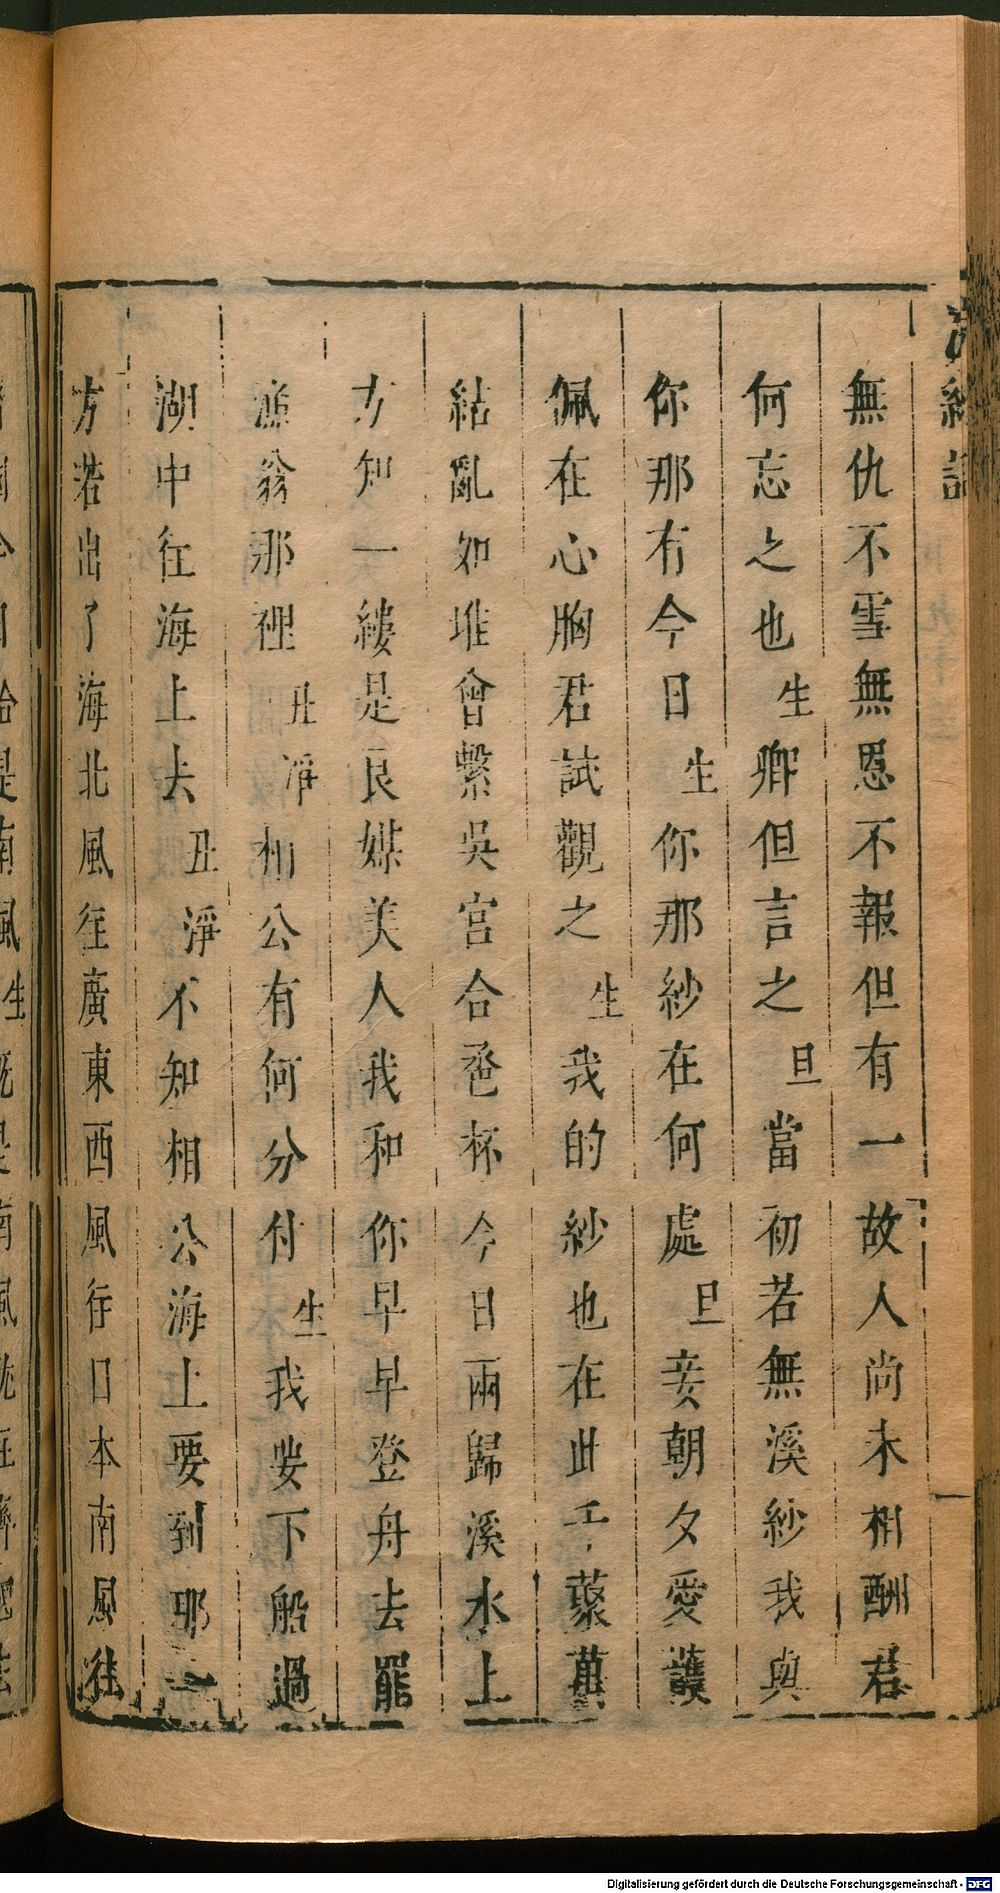 浣紗記
無仇不雪無恩不報但有一故人尚未相酬君
何忘之也生卿但言之旦當初若無溪紗我與
你那有今日生你那紗在何處旦妾朝夕愛護
佩在心胸君試觀之生我的紗也在此千縈萬
結亂如堆曾繫吳宮合卺杯今日兩歸溪水上
方知一縷是良媒美人我和你早早登舟去罷
漁翁那裡丑淨相公有何分付生我要下船過
湖中往海上去丑淨不知相公海上要到那一
方若出了海北風往廣東西風行日本南風往
Digitalisierung gefördert durch die Deutsche Forschungsgemeinschaft - DFG